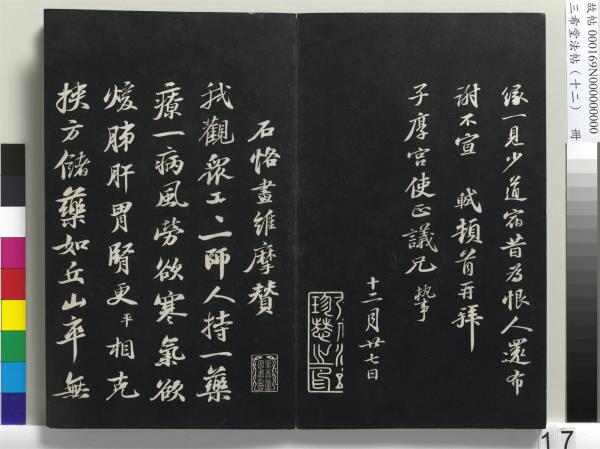 緣一見少道宿昔為恨人還布
謝不宣 軾頓首再拜
子厚宮使正議兄 執事
十二月廿七日
石恪畫維摩贊
我觀眾工工一師人持一藥
療一病風勞欲寒氣欲
煖肺肝胃腎更平相克
挾方儲藥如丘山卒無
故帖 000169N000000000
三希堂法帖（十二） 冊
17